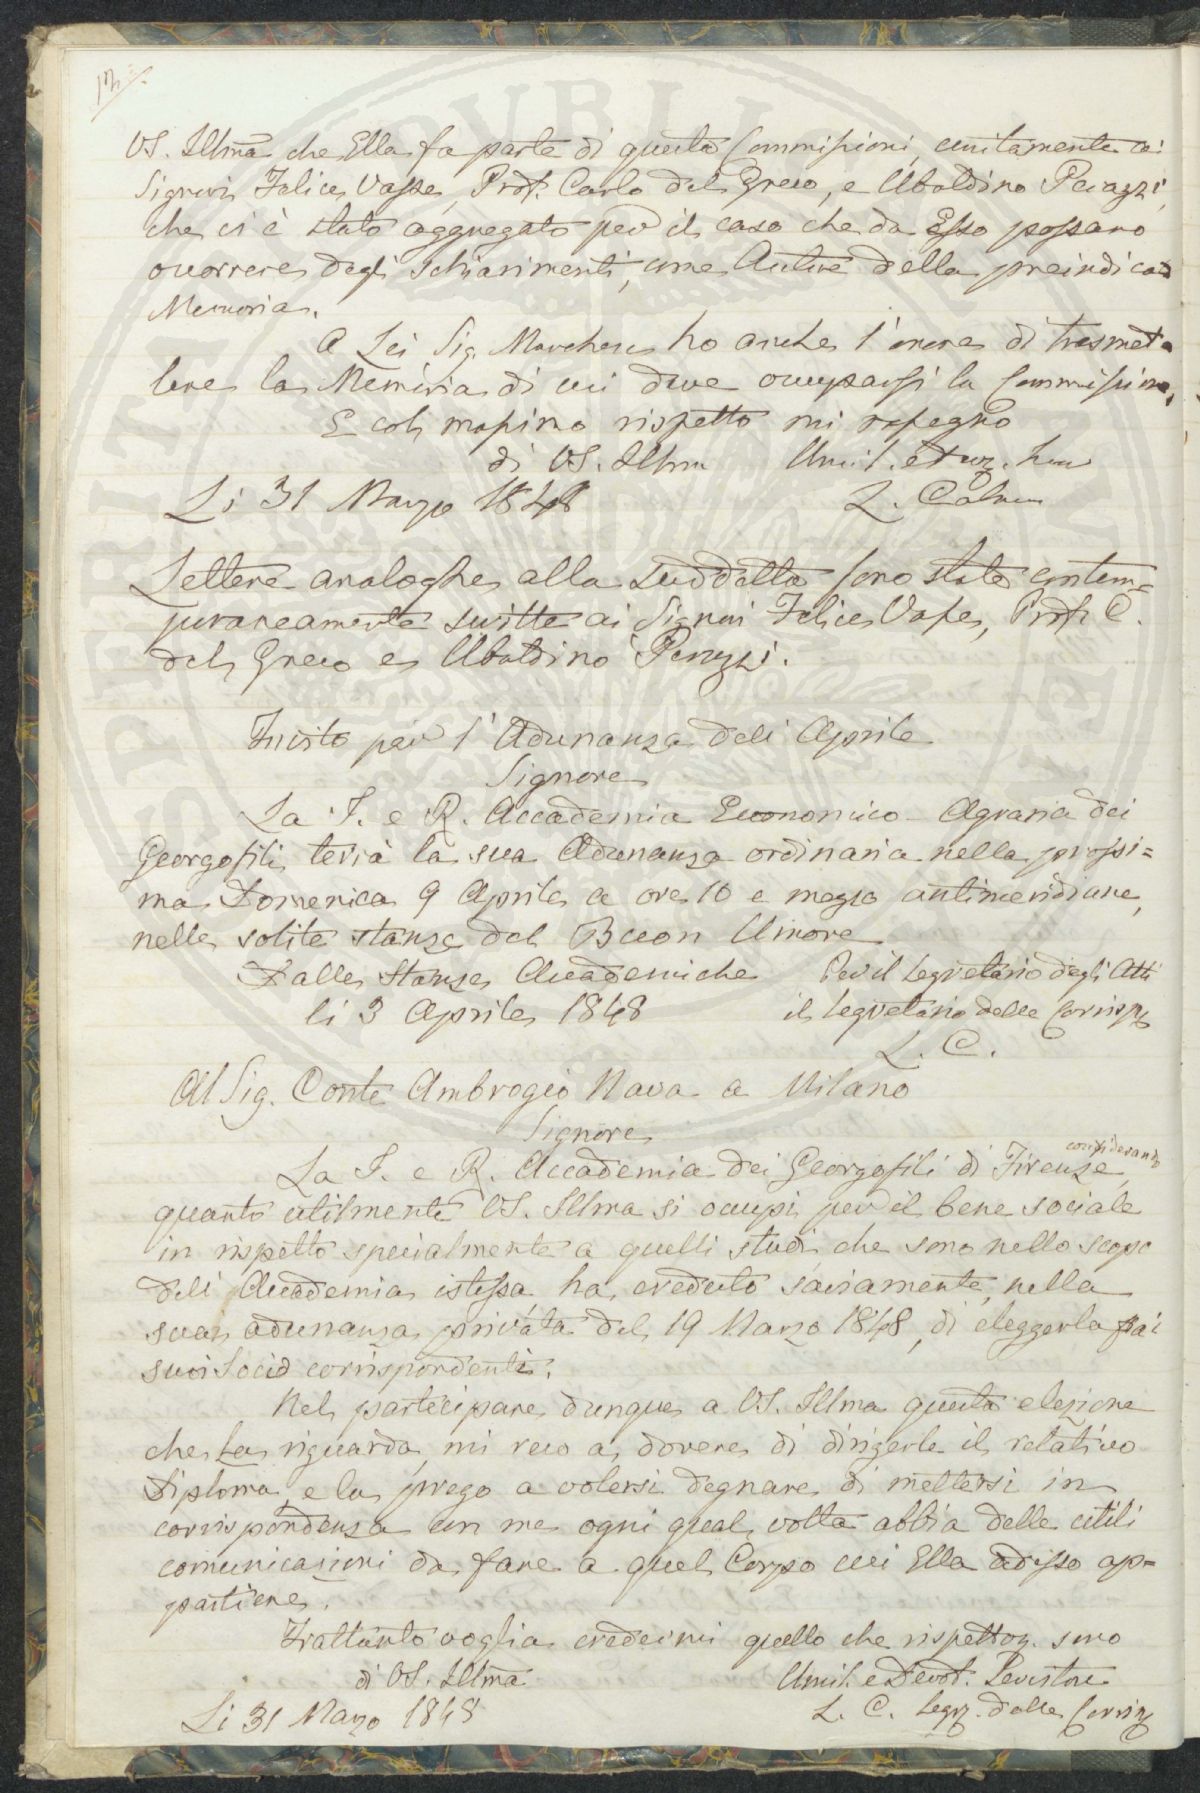 VS. Illma che Ella fa parte di questa Commissione, unitamente ai
Signori Felice Vasse, Prof. Carlo del Greco, e Ubaldino Peruzzi,
che ci è stato aggregato per il caso che da Esso possano
occorrere degli schiarimenti, come Autore della preindicata
Memoria.
A Lei Sig. Marchese ho anche l'onore di trasmet=
tere la Memoria di cui deve occuparsi la Commissione,
E col massimo rispetto mi rassegno
di VS. Illma
Li 31 Marzo 1848
Lettere analoghe alla suddetta sono state contem=
poraneamente scritte ai Signori Felice Vasse, Prof. C.
del Greco e Ubaldino Peruzzi.
Invito per l'Adunanza del Aprile
Signore
La I. e R. Accademia Economico-Agraria dei
Georgofili terrà la sua Adunanza ordinaria nella prossi=
ma Domenica 9 Aprile a ore 10 e mezzo antimeridiane,
nelle solite stanze del Buon Umore
Dalle Stanze Accademiche Per il Segretario degli Atti
li 3 Aprile 1848 il Segretario delle Corrisp.
L. C.
Al Sig. Conte Ambrogio Nava a Milano
Signore
La I. e R. Accademia dei Georgofili di Firenze, considerando
quanto utilmente VS. Illma si occupi per il bene sociale
in rispetto specialmente a quelli studi che sono nello scopo
dell'Accademia istessa ha creduto saviamente, nella
sua adunanza privata del 19 Marzo 1848, di eleggerla fra i
suoi Socio corrispondenti.
Nel partecipare dunque a VS. Illma questa elezione
che La riguarda mi reco a dovere di dirigerle il relativo
Diploma, e la prego a volersi degnare di mettersi in
corrispondenza con me ogni qual volta abbia delle utili
comunicazioni da fare a quel Corpo cui Ella adesso ap=
partiene.
Frattanto voglia credermi quello che rispettoz. sono
di VS. Illma Umil. e Devot. Servitore
Li 31 Marzo 1848 L. C. Segr. delle Corrisp.